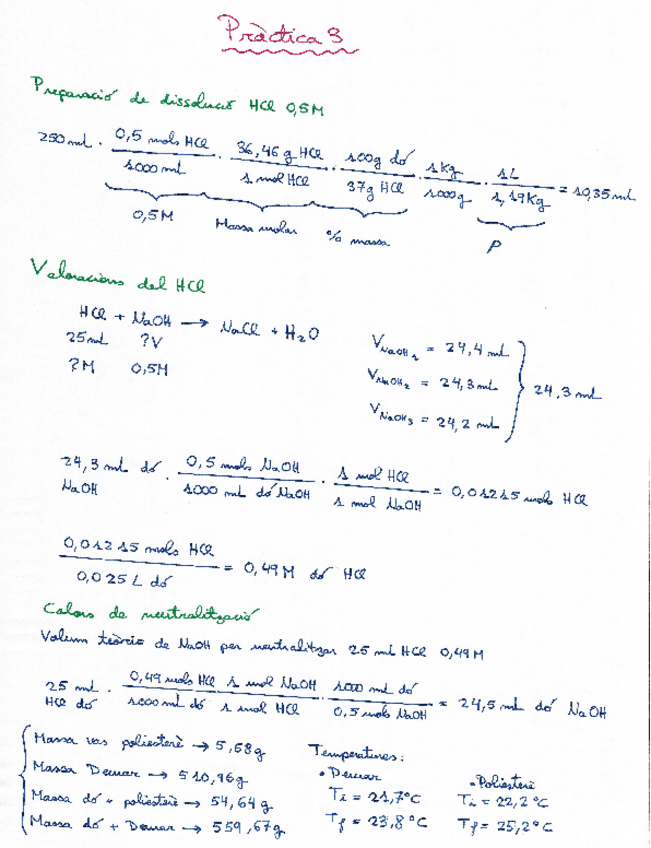 Pràctica 3
Preparació de dissolució HCl 0,5M
250 ml · 0,5 mols HCl / 1000 ml · 36,46 g HCl / 1 mol HCl · 100g dó / 37g HCl · 1Kg / 1000g · 1L / 1,19Kg = 10,35 ml
0,5M Massa molar % massa ρ
Valoracions del HCl
HCl + NaOH → NaCl + H₂O
25ml ?V
?M 0,5M
V NaOH₁ = 24,4 ml
V NaOH₂ = 24,3 ml
V NaOH₃ = 24,2 ml
24,3 ml
24,3 ml dó NaOH · 0,5 mols NaOH / 1000 ml dó NaOH · 1 mol HCl / 1 mol NaOH = 0,01215 mols HCl
0,01215 mols HCl / 0,025 L dó = 0,49 M dó HCl
Calors de neutralització
Volum teòric de NaOH per neutralitzar 25 ml HCl 0,49M
25 ml HCl dó · 0,49 mols HCl / 1000 ml dó · 1 mol NaOH / 1 mol HCl · 1000 ml dó / 0,5 mols NaOH = 24,5 ml dó NaOH
Massa vas poliesterè → 5,68g
Massa Dewar → 510,96g
Massa dó + poliesterè → 54,64g
Massa dó + Dewar → 559,67g
Temperatures:
• Dewar
Ti = 21,7°C
Tf = 23,8°C
• Poliesterè
Ti = 22,2°C
Tf = 25,2°C